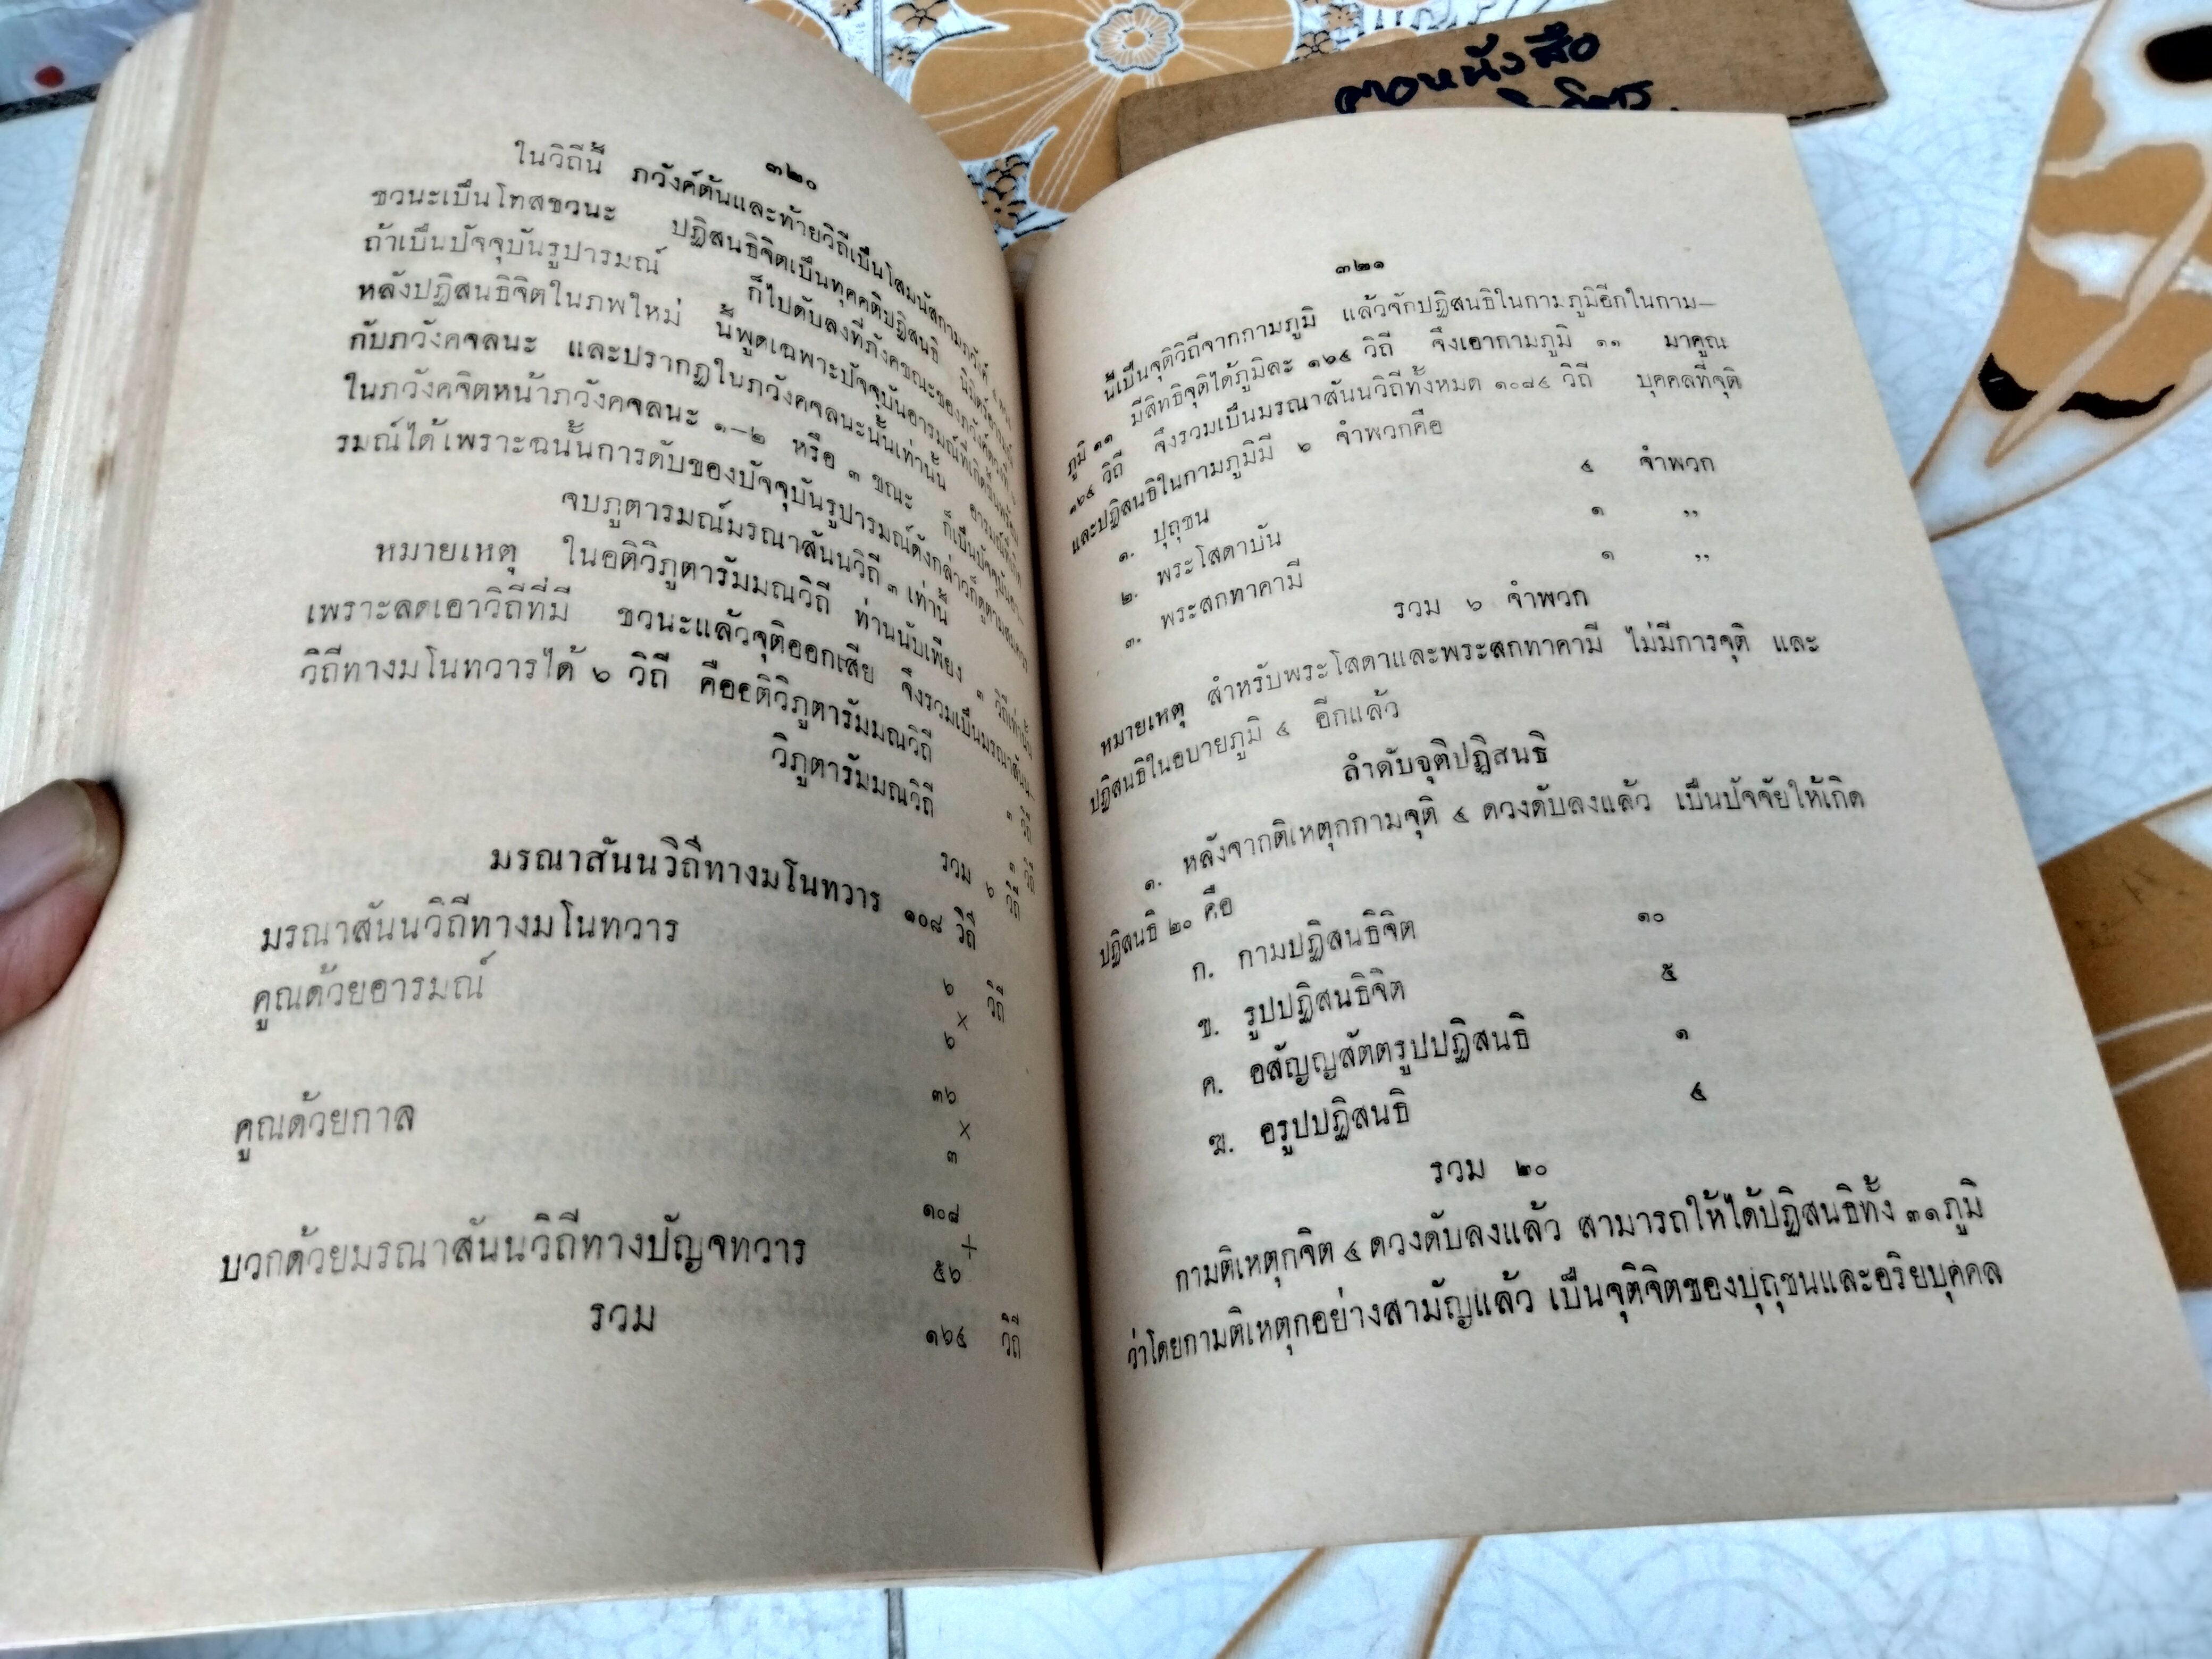 ๓๒๐
ในวิถีนี้ ภวังค์ต้นและท้ายวิถีเป็นโสมนัสกามภวังค์
ชวนะเป็นโทสชวนะ ปฏิสนธิจิตเป็นทุคคติปฏิสนธิ
ถ้าเป็นปัจจุบันรูปารมณ์ ก็ไปดับลงที่ภังคขณะของภวังค์
หลังปฏิสนธิจิตในภพใหม่ นี้พูดเฉพาะปัจจุบันอารมณ์ที่เกิดขึ้นพร้อม
กับภวังคจลนะ และปรากฏในภวังคจลนะนั้นเท่านั้น
ในภวังคจิตหน้าภวังคจลนะ ๑–๒ หรือ ๓ ขณะ ก็เป็นปัจจุบันอา–
รมณ์ได้เพราะฉนั้นการดับของปัจจุบันรูปารมณ์ดังกล่าวก็ดูตามสมควร
จบภูตารมณ์มรณาสันนวิถี ๓ เท่านี้
หมายเหตุ ในอติวิภูตารัมมณวิถี ท่านนับเพียง ๓ วิถีเท่านั้น
เพราะลดเอาวิถีที่มี ชวนะแล้วจุติออกเสีย จึงรวมเป็นมรณาสันน–
วิถีทางมโนทวารได้ ๖ วิถี คืออติวิภูตารัมมณวิถี ๓ วิถี
วิภูตารัมมณวิถี ๓ วิถี
รวม ๖ วิถี
มรณาสันนวิถีทางมโนทวาร ๑๐๘ วิถี
มรณาสันนวิถีทางมโนทวาร ๖ วิถี
×
คูณด้วยอารมณ์ ๖
๓๖
×
คูณด้วยกาล ๓
๑๐๘
+
บวกด้วยมรณาสันนวิถีทางปัญจทวาร ๕๖
รวม ๑๖๔ วิถี
๓๒๑
นี้เป็นจุติวิถีจากกามภูมิ แล้วจักปฏิสนธิในกามภูมิอีกในกาม–
ภูมิ ๑๑ มีสิทธิจุติได้ภูมิละ ๑๖๔ วิถี จึงเอากามภูมิ ๑๑ มาคูณ
๑๖๔ วิถี จึงรวมเป็นมรณาสันนวิถีทั้งหมด ๑๐๘๔ วิถี บุคคลที่จุติ
และปฏิสนธิในกามภูมิมี ๖ จำพวกคือ
๑. ปุถุชน ๔ จำพวก
๒. พระโสดาบัน ๑ ,,
๓. พระสกทาคามี ๑ ,,
รวม ๖ จำพวก
หมายเหตุ สำหรับพระโสดาและพระสกทาคามี ไม่มีการจุติ และ
ปฏิสนธิในอบายภูมิ ๔ อีกแล้ว
ลำดับจุติปฏิสนธิ
๑. หลังจากติเหตุกกามจุติ ๔ ดวงดับลงแล้ว เป็นปัจจัยให้เกิด
ปฏิสนธิ ๒๐ คือ
ก. กามปฏิสนธิจิต ๑๐
ข. รูปปฏิสนธิจิต ๕
ค. อสัญญสัตตรูปปฏิสนธิ ๑
ฆ. อรูปปฏิสนธิ ๔
รวม ๒๐
กามติเหตุกจิต ๔ ดวงดับลงแล้ว สามารถให้ได้ปฏิสนธิทั้ง ๓๑ภูมิ
ว่าโดยกามติเหตุกอย่างสามัญแล้ว เป็นจุติจิตของบุถุชนและอริยบุคคล